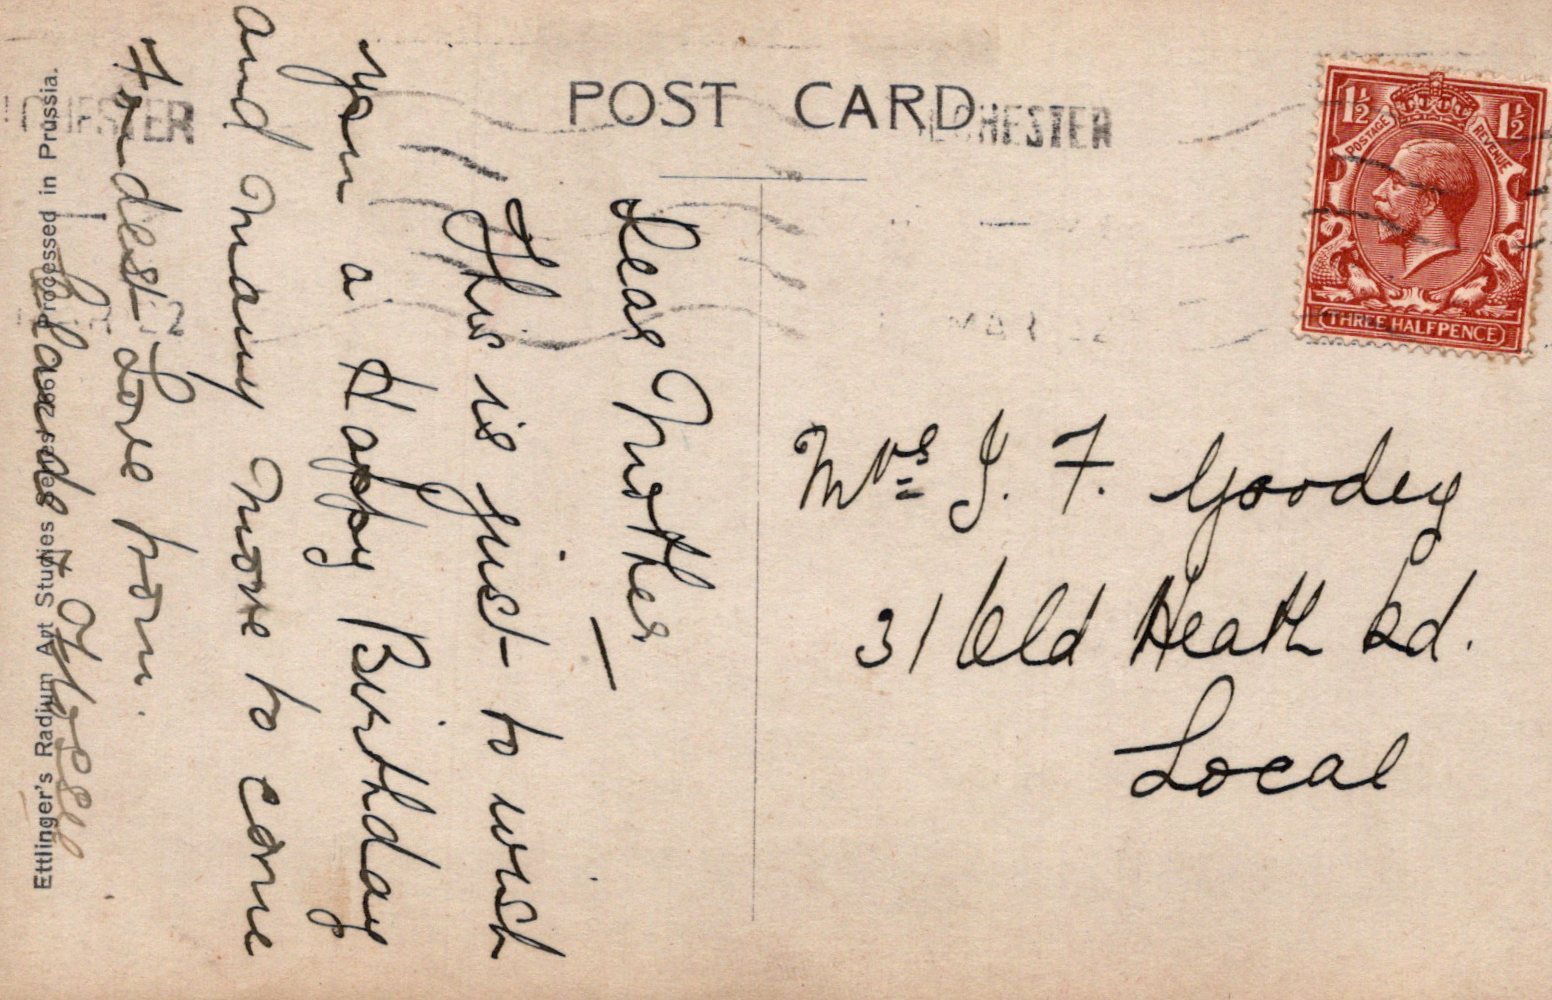 POST CARD
CHESTER
MAR
1½ 1½
POSTAGE REVENUE
THREE HALFPENCE
Dear Mother
This is just to wish
you a Happy Birthday
and many more to come
Fondest Love from.
Claude & Flossy
Mrs J. F. Goodey
31 Old Heath Rd.
Local
Ettlinger's Radium Art Studies Series Processed in Prussia.